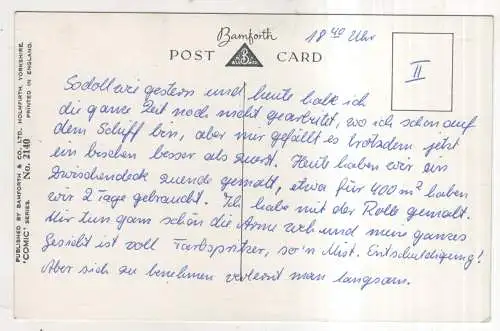 Bamforth
18⁴⁰ Uhr
POST CARD
II
Sodoll wie gestern und heute habe ich
die ganze Zeit noch nicht gearbeitet, wo ich schon auf
dem Schiff bin, aber mir gefällt es trotsdem jetzt
ein bischen besser als zuerst. Heute haben wir ein
Zwischendeck zuende gemalt, etwa für 400 m² haben
wir 2 Tage gebraucht. Ich habe mit der Rolle gemalt.
Mir tun ganz schön die Arme weh und mein ganzes
Gesicht ist voll Farbspritzer, so'n Mist. Entschuldigung!
Aber sich zu benehmen verlernt man langsam.
PUBLISHED BY BAMFORTH & CO. LTD. HOLMFIRTH, YORKSHIRE.
"COMIC" SERIES No. 2140 PRINTED IN ENGLAND.